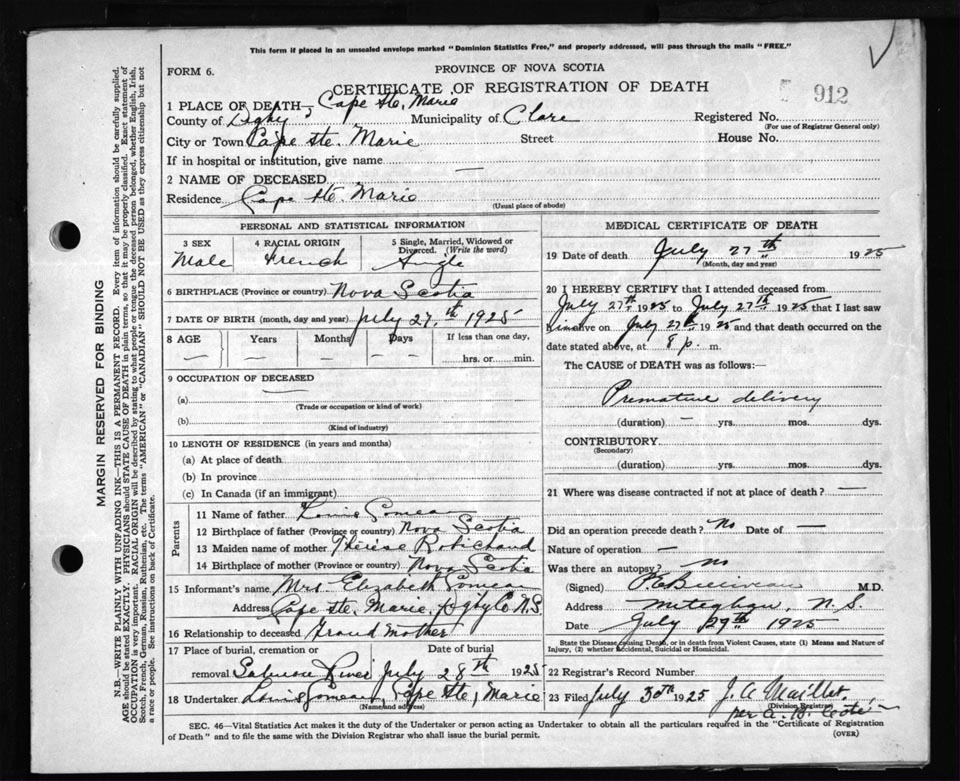 This form if placed in an unsealed envelope marked "Dominion Statistics Free," and properly addressed, will pass through the mails "FREE."
FORM 6.
PROVINCE OF NOVA SCOTIA
CERTIFICATE OF REGISTRATION OF DEATH
912
1 PLACE OF DEATH Cape Ste. Marie
County of Digby Municipality of Clare Registered No.
(For use of Registrar General only)
City or Town Cape Ste. Marie Street House No.
If in hospital or institution, give name —
2 NAME OF DECEASED
Residence Cape Ste. Marie
(Usual place of abode)
PERSONAL AND STATISTICAL INFORMATION
3 SEX 4 RACIAL ORIGIN 5 Single, Married, Widowed or Divorced. (Write the word)
Male French Single
6 BIRTHPLACE (Province or country) Nova Scotia
7 DATE OF BIRTH (month, day and year) July 27th 1925
8 AGE Years Months Days If less than one day,
— — — — hrs. or min.
9 OCCUPATION OF DECEASED
(a) —
(Trade or occupation or kind of work)
(b)
(Kind of industry)
10 LENGTH OF RESIDENCE (in years and months)
(a) At place of death
(b) In province
(c) In Canada (if an immigrant)
Parents
11 Name of father Louis Comeau
12 Birthplace of father (Province or country) Nova Scotia
13 Maiden name of mother Thérèse Robichaud
14 Birthplace of mother (Province or country) Nova Scotia
15 Informant's name Mrs Elizabeth Comeau
Address Cape Ste. Marie, Digby Co N.S
16 Relationship to deceased Grand Mother
17 Place of burial, cremation or Date of burial
removal Salmon River July 28th 1925
18 Undertaker Louis Comeau, Cape Ste. Marie
(Name and address)
MEDICAL CERTIFICATE OF DEATH
19 Date of death July 27th 1925
(Month, day and year)
20 I HEREBY CERTIFY that I attended deceased from
July 27th 1925 to July 27th 1925 that I last saw
him alive on July 27th 1925 and that death occurred on the
date stated above, at 8 p. m.
The CAUSE of DEATH was as follows:—
Premature delivery
(duration) — yrs. mos. dys.
CONTRIBUTORY
(Secondary)
(duration) yrs. mos. dys.
21 Where was disease contracted if not at place of death? —
Did an operation precede death? No Date of —
Nature of operation —
Was there an autopsy? no
(Signed) M.D.
Address Meteghan, N. S.
Date July 29th 1925
State the Disease causing Death, or in death from Violent Causes, state (1) Means and Nature of
Injury, (2) whether Accidental, Suicidal or Homicidal.
22 Registrar's Record Number
23 Filed July 30th 1925 J. A. Maillet
(Division Registrar)
per
SEC. 46—Vital Statistics Act makes it the duty of the Undertaker or person acting as Undertaker to obtain all the particulars required in the "Certificate of Registration
of Death" and to file the same with the Division Registrar who shall issue the burial permit.
(OVER)
MARGIN RESERVED FOR BINDING
N.B.—WRITE PLAINLY WITH UNFADING INK—THIS IS A PERMANENT RECORD. Every item of information should be carefully supplied.
AGE should be stated EXACTLY. PHYSICIANS should STATE CAUSE OF DEATH in plain terms, so that it may be properly classified. Exact statement of
OCCUPATION is very important. RACIAL ORIGIN will be described by stating to what people or tongue the deceased person belonged, whether English, Irish,
Scotch, French, German, Russian, Ruthenian, etc. The terms "AMERICAN" or "CANADIAN" SHOULD NOT BE USED as they express citizenship but not
a race or people. See instructions on back of Certificate.